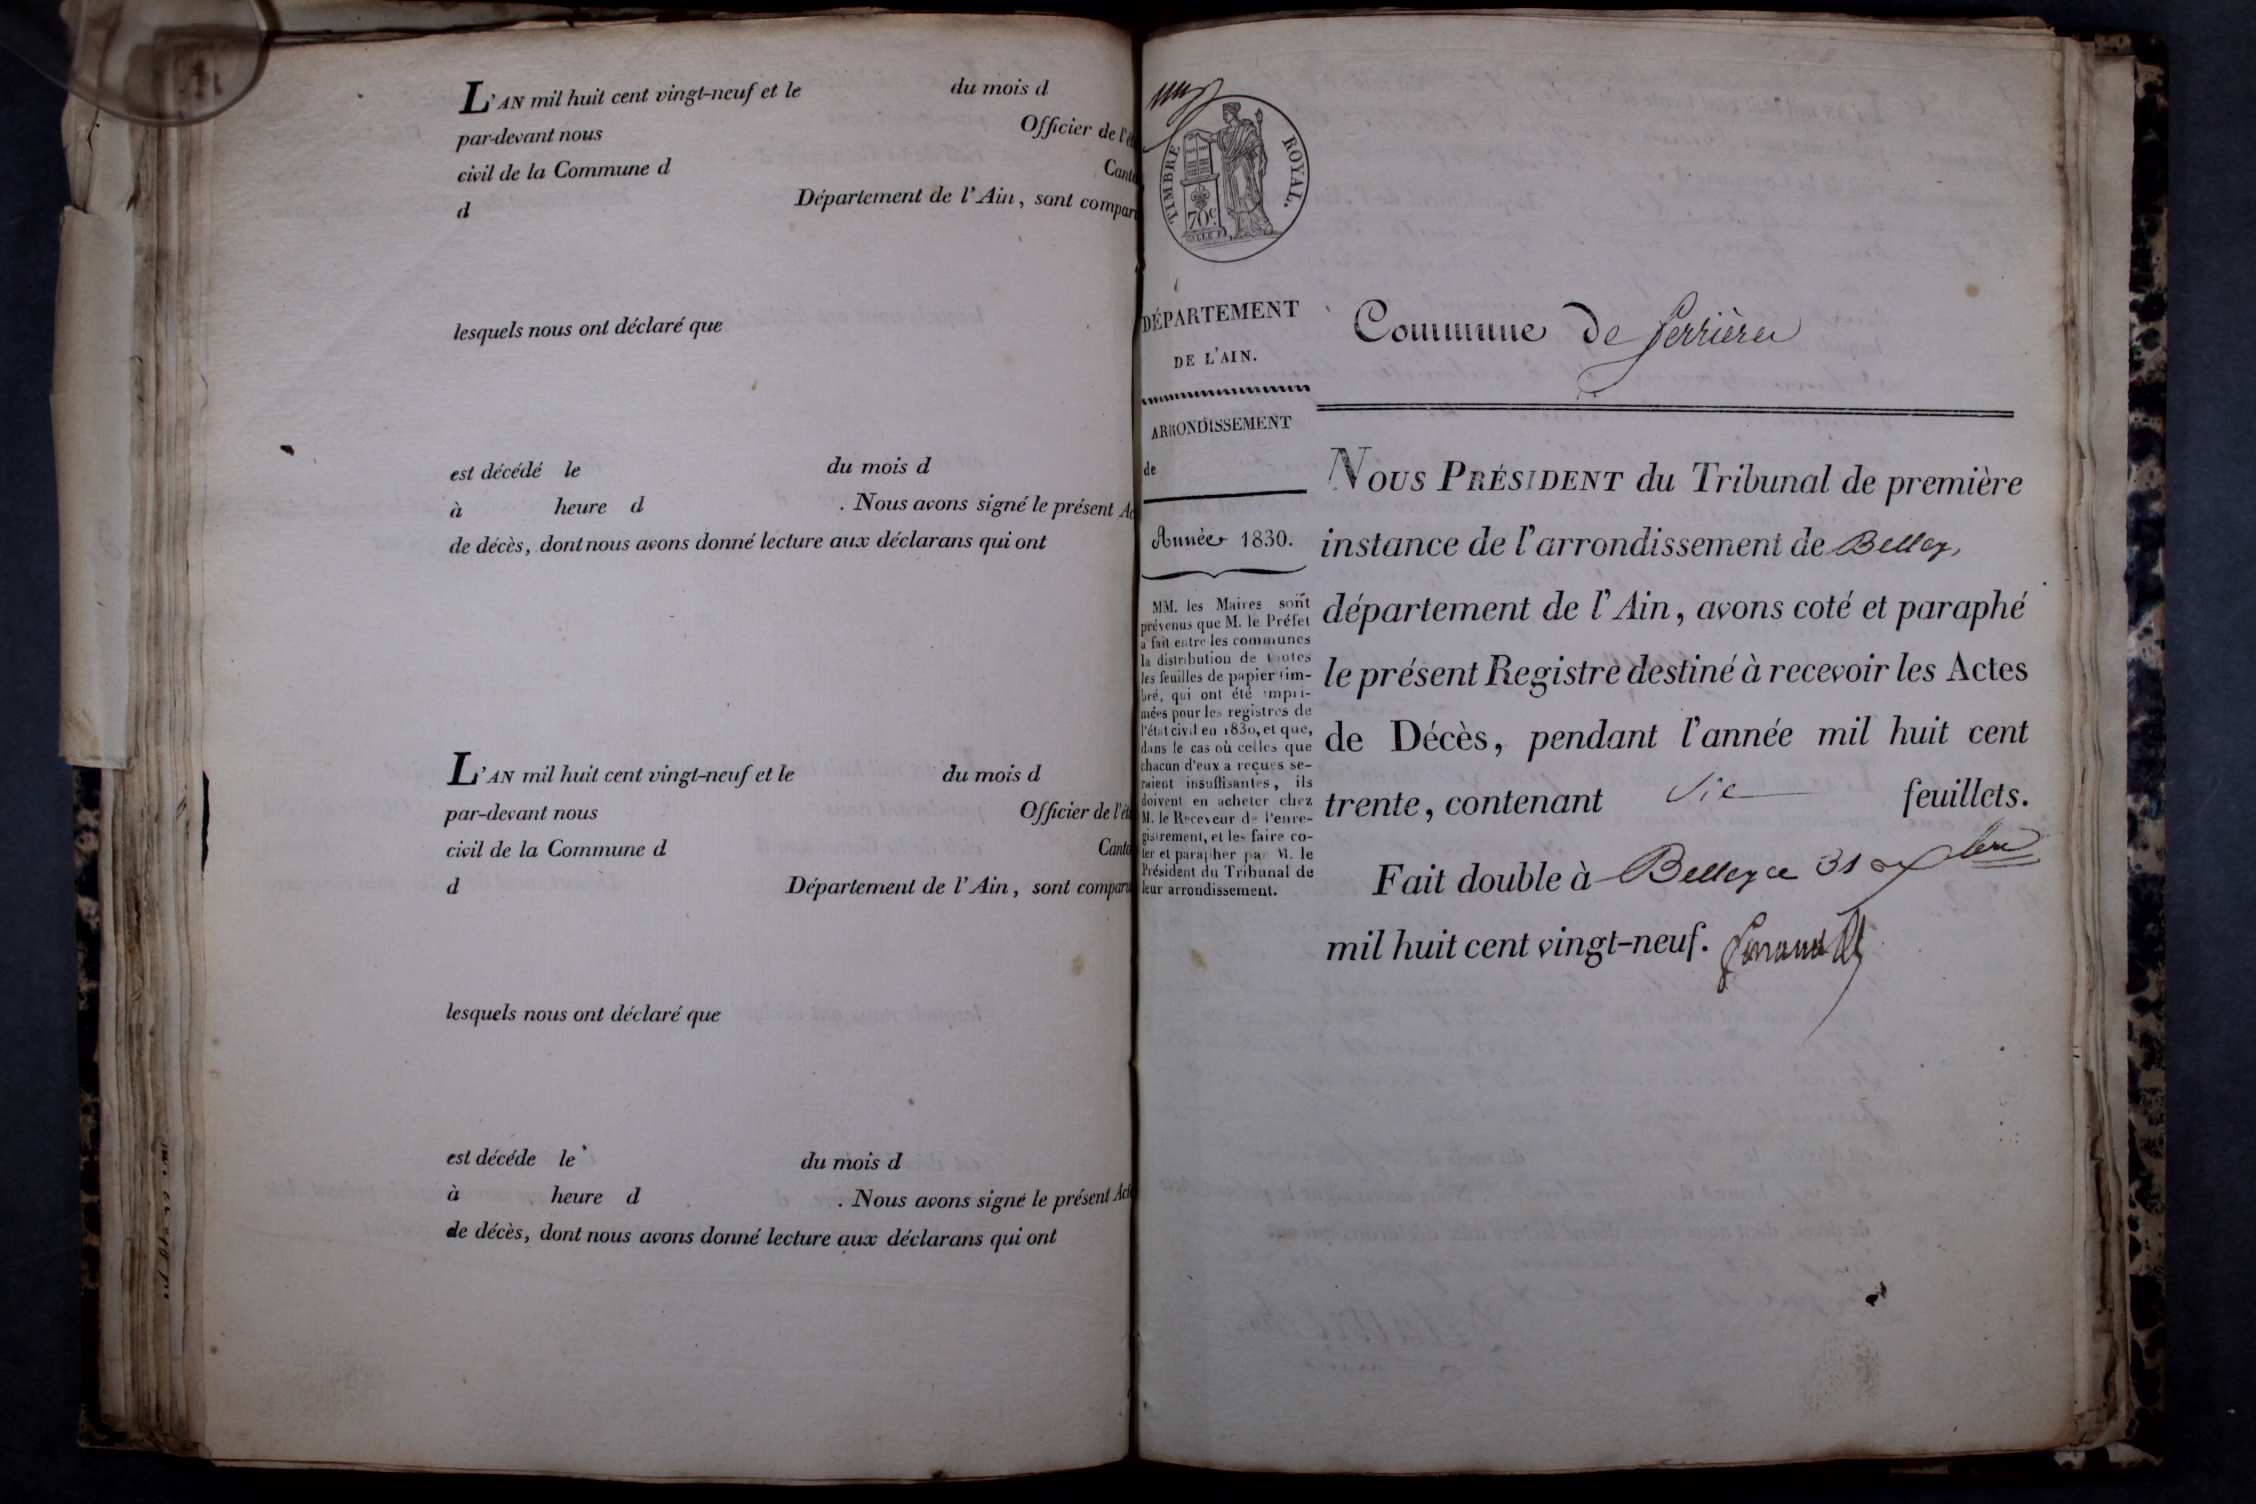 L'AN mil huit cent vingt-neuf et le du mois d
par-devant nous Officier de l'ét
civil de la Commune d Canto
d Département de l'Ain, sont compar
lesquels nous ont déclaré que
est décédé le du mois d
à heure d . Nous avons signé le présent Ac
de décès, dont nous avons donné lecture aux déclarans qui ont
L'AN mil huit cent vingt-neuf et le du mois d
par-devant nous Officier de l'éta
civil de la Commune d Canto
d Département de l'Ain, sont comparu
lesquels nous ont déclaré que
est décéde le du mois d
à heure d . Nous avons signé le présent Acte
de décès, dont nous avons donné lecture aux déclarans qui ont
TIMBRE ROYAL.
70c
DÉPARTEMENT
DE L'AIN.
ARRONDISSEMENT
de
Année 1830.
MM. les Maires sont
prévenus que M. le Préfet
a fait entre les communes
la distribution de toutes
les feuilles de papier tim-
bré, qui ont été impri-
mées pour les registres de
l'état civil en 1830, et que,
dans le cas où celles que
chacun d'eux a reçues se-
raient insuffisantes, ils
doivent en acheter chez
M. le Receveur de l'enre-
gistrement, et les faire co-
ter et parapher par M. le
Président du Tribunal de
leur arrondissement.
Commune de Serrières
NOUS PRÉSIDENT du Tribunal de première
instance de l'arrondissement de Belley,
département de l'Ain, avons coté et paraphé
le présent Registre destiné à recevoir les Actes
de Décès, pendant l'année mil huit cent
trente, contenant Six feuillets.
Fait double à Belley ce 31 xbre
mil huit cent vingt-neuf.